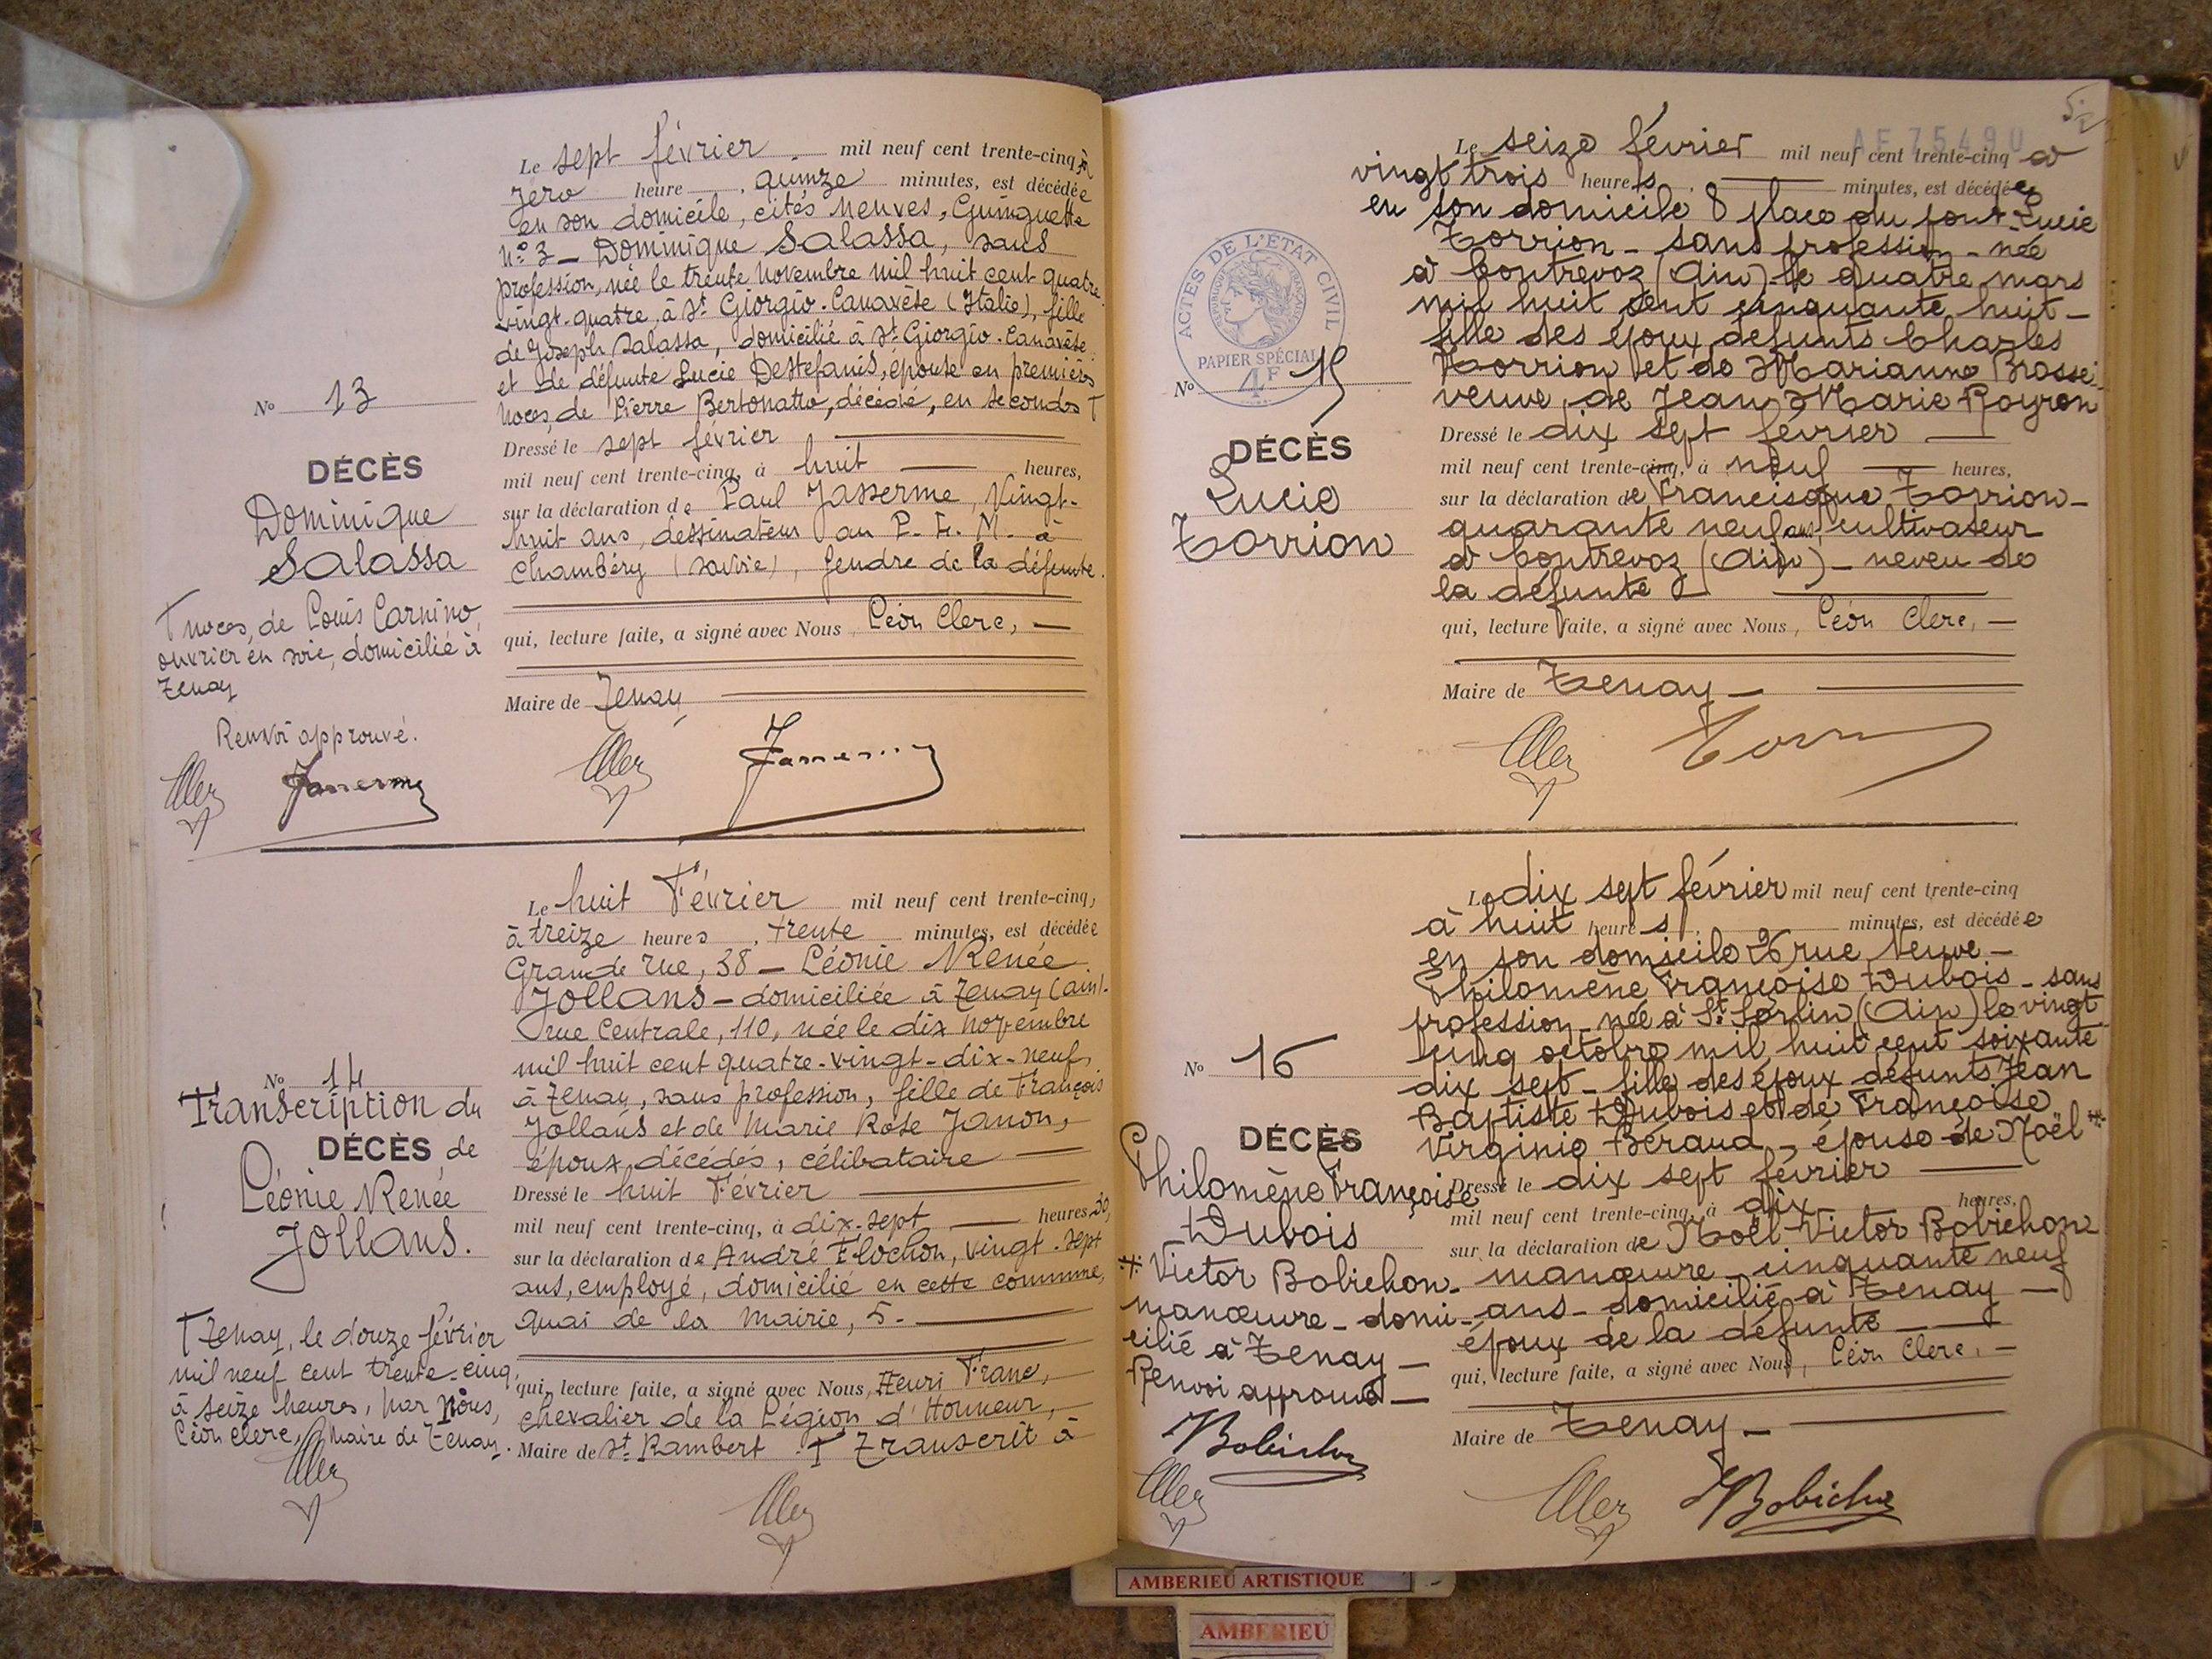 Le sept février mil neuf cent trente-cinq, à
zéro heure, quinze minutes, est décédée
en son domicile, cités neuves, Guinguette
n° 3 _ Dominique Salassa, sans
profession, née le trente novembre mil huit cent quatre-
vingt-quatre, à St Giorgio-Canavèse (Italie), fille
de Joseph Salassa, domicilié à St Giorgio-Canavèse
et de défunte Lucie Destefanis, épouse en premières
noces, de Pierre Bertonatto, décédé, en secondes T
N° 13
DÉCÈS
Dominique
Salassa
Dressé le sept février
mil neuf cent trente-cinq, à huit heures,
sur la déclaration de Paul Jasserme, vingt-
huit ans, dessinateur au P. L. M. à
Chambéry (Savoie), gendre de la défunte.
qui, lecture faite, a signé avec Nous, Léon Clerc,
Maire de Tenay
T noces, de Louis Carnino,
ouvrier en soie, domicilié à
Tenay
Renvoi approuvé.
Le huit Février mil neuf cent trente-cinq,
à treize heures, trente minutes, est décédée
Grande rue, 38 _ Léonie Renée
Jollans _ domiciliée à Tenay (ain).
rue Centrale, 110, née le dix novembre
mil huit cent quatre-vingt-dix-neuf,
à Tenay, sans profession, fille de François
Jollans et de Marie Rose Janon,
époux décédés, célibataire
N° 14
Transcription du
DÉCÈS de
Léonie Renée
Jollans.
Dressé le huit Février
mil neuf cent trente-cinq, à dix-sept heures 30,
sur la déclaration de André Flochon, vingt-sept
ans, employé, domicilié en cette commune,
quai de la Mairie, 5.
qui, lecture faite, a signé avec Nous, Henri Franc,
chevalier de la Légion d'Honneur,
Maire de St Rambert. T Transcrit à
T Tenay, le douze février
mil neuf cent trente-cinq,
à seize heures, par nous,
Léon Clerc, Maire de Tenay.
AF 75490
Le seize février mil neuf cent trente-cinq à
vingt trois heures minutes, est décédée
en son domicile 8 place du pont Lucie
Torrion _ sans profession _ née
à Contrevoz (Ain) le quatre mars
mil huit cent cinquante huit _
fille des époux défunts Charles
Torrion et de Marianne Brosse
veuve de Jean Marie Royron
ACTES DE L'ÉTAT CIVIL
RÉPUBLIQUE FRANÇAISE
PAPIER SPÉCIAL
4F
N° 15
DÉCÈS
Lucie
Torrion
Dressé le dix sept février
mil neuf cent trente-cinq, à neuf heures,
sur la déclaration de Francisque Torrion _
quarante neuf ans cultivateur
à Contrevoz (Ain) _ neveu de
la défunte
qui, lecture faite, a signé avec Nous, Léon Clerc,
Maire de Tenay
Le dix sept février mil neuf cent trente-cinq
à huit heures minutes, est décédée
en son domicile 26 rue Neuve _
Philomène Françoise Dubois _ sans
profession _ née à St Sorlin (Ain) le vingt
cinq octobre mil huit cent soixante
dix sept _ fille des époux défunts Jean
Baptiste Dubois et de Françoise
Virginie Béraud _ épouse de Noël *
N° 16
DÉCÈS
Philomène Françoise
Dubois
Dressé le dix sept février
mil neuf cent trente-cinq, à dix heures,
sur la déclaration de Noël Victor Bobichon
manœuvre cinquante neuf
ans _ domicilié à Tenay
époux de la défunte
qui, lecture faite, a signé avec Nous, Léon Clerc,
Maire de Tenay
* Victor Bobichon _
manœuvre _ domi-
cilié à Tenay _
Renvoi approuvé _
Bobichon
Bobichon
AMBERIEU ARTISTIQUE
AMBERIEU